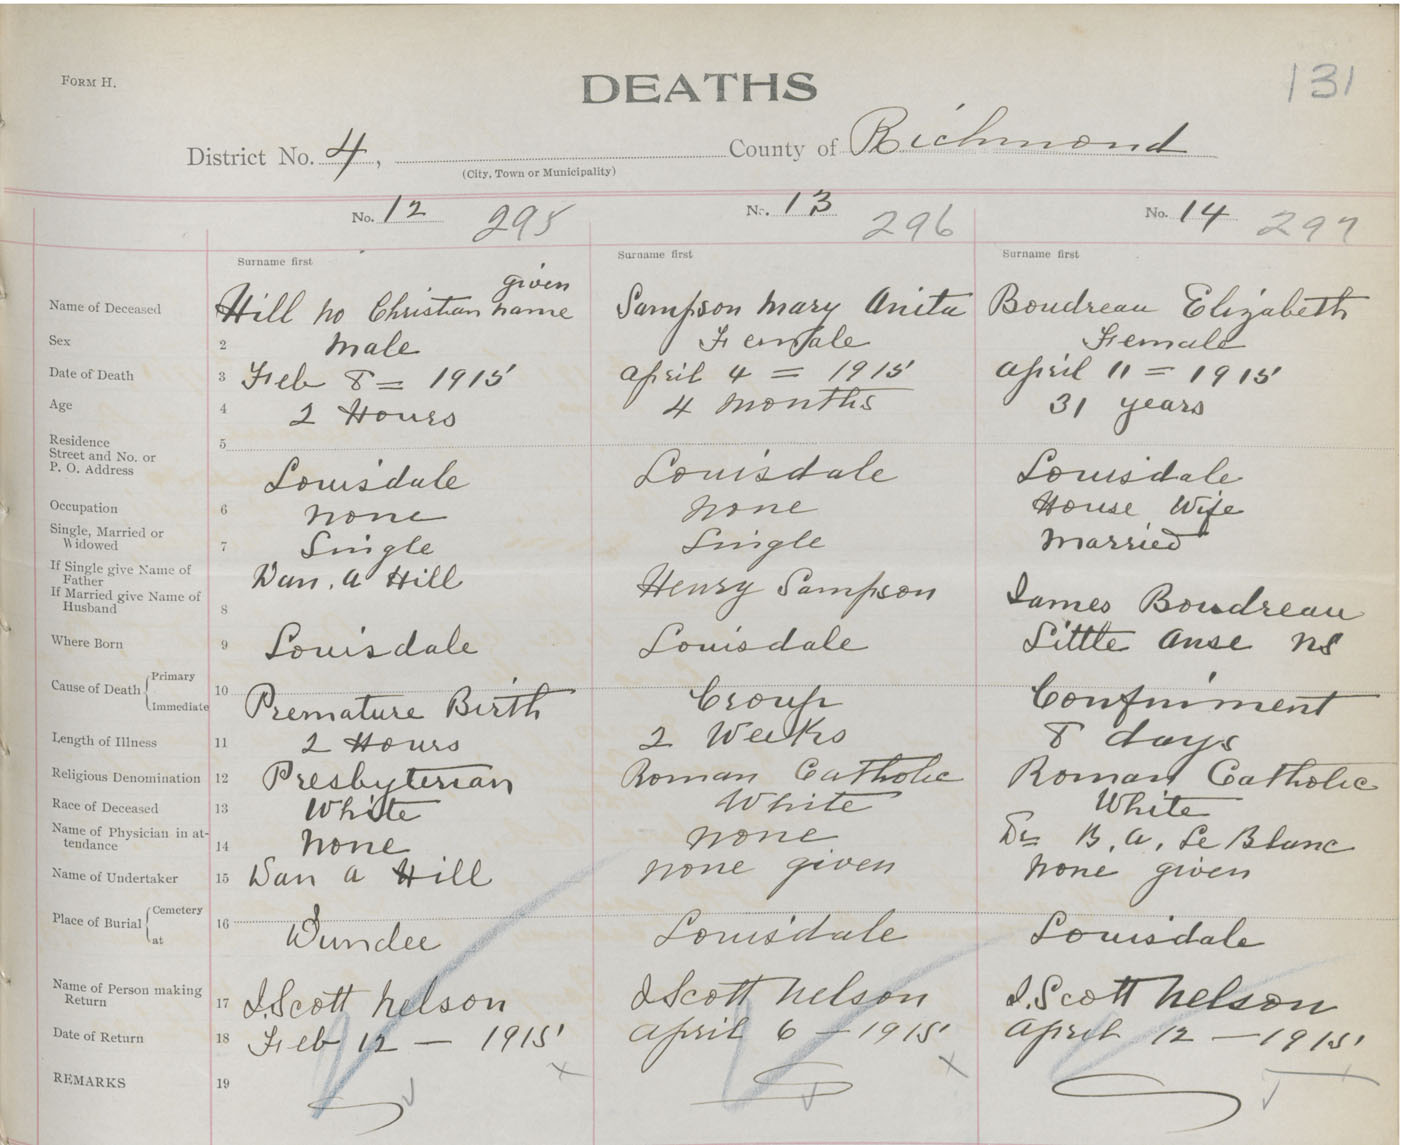 FORM H.
DEATHS
131
District No. 4, County of Richmond
(City, Town or Municipality)
No. 12 295 No. 13 296 No. 14 297
Surname first Surname first Surname first
given
Name of Deceased Hill no Christian name Sampson Mary Anita Boudreau Elizabeth
Sex 2 Male Female Female
Date of Death 3 Feb 8 = 1915 April 4 = 1915 April 11 = 1915
Age 4 2 Hours 4 Months 31 years
Residence 5
Street and No. or
P. O. Address Louisdale Louisdale Louisdale
Occupation 6 None None House Wife
Single, Married or
Widowed 7 Single Single Married
If Single give Name of
Father Dan. A Hill Henry Sampson James Boudreau
If Married give Name of
Husband 8
Where Born 9 Louisdale Louisdale Little Anse NS
Cause of Death Primary 10
Immediate Premature Birth Croup Confiniment
Length of Illness 11 2 Hours 2 Weeks 8 days
Religious Denomination 12 Presbyterian Roman Catholic Roman Catholic
Race of Deceased 13 White White White
Name of Physician in at-
tendance 14 None None Dr B. A. Le Blanc
Name of Undertaker 15 Dan A Hill None given None given
Place of Burial Cemetery 16
at Dundee Louisdale Louisdale
Name of Person making
Return 17 J. Scott Nelson J Scott Nelson J. Scott Nelson
Date of Return 18 Feb 12 — 1915 April 6 — 1915 April 12 — 1915
REMARKS 19